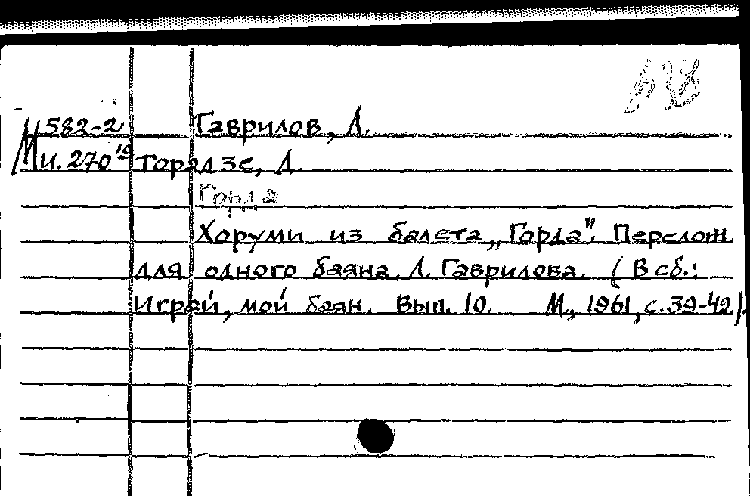 М582-2 Гаврилов, Л.
И. 270 Торадзе, Л.
Горда
Хоруми из балета „Горда". Перелож.
для одного баяна Л. Гаврилова. (В сб.:
Играй, мой баян. Вып. 10. М., 1961, с. 39-42).